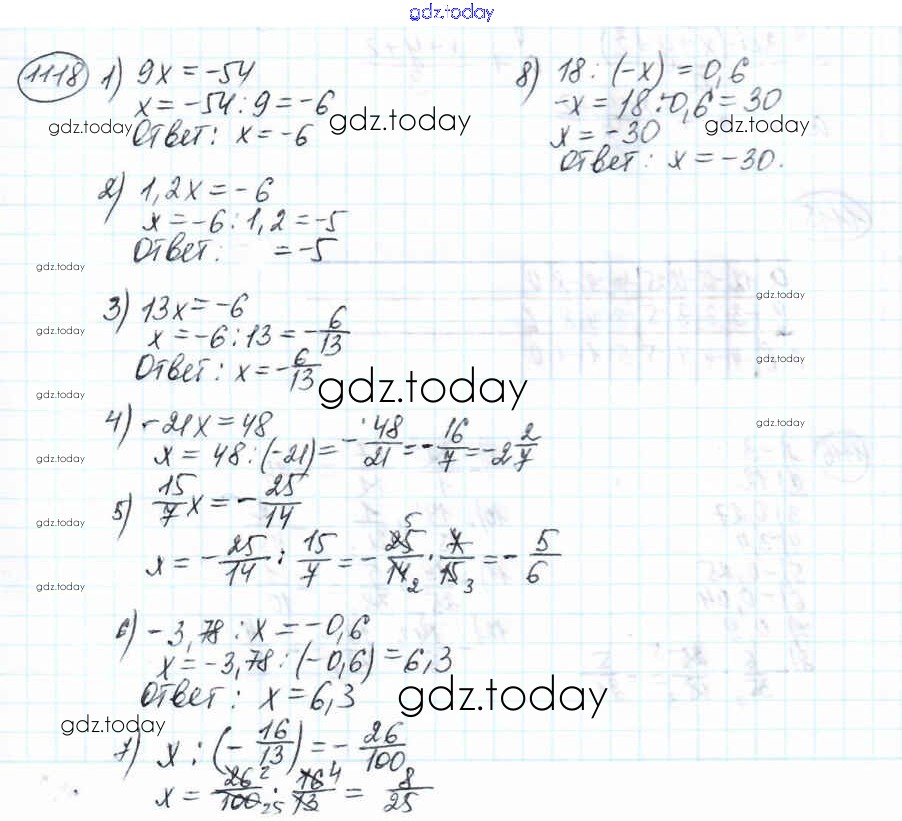 gdz.today
1118 1) 9x = -54
x = -54 : 9 = -6
Ответ: x = -6
gdz.today
gdz.today
2) 1,2x = -6
x = -6 : 1,2 = -5
Ответ: = -5
gdz.today
3) 13x = -6
x = -6 : 13 = -6/13
Ответ: x = -6/13
gdz.today
gdz.today
gdz.today
4) -21x = 48
x = 48 : (-21) = -48/21 = -16/7 = -2 2/7
gdz.today
5) 15/7 x = -25/14
x = -25/14 : 15/7 = -25/14 · 7/15 = -5/6
5
2 3
gdz.today
gdz.today
6) -3,78 : x = -0,6
x = -3,78 : (-0,6) = 6,3
Ответ: x = 6,3
gdz.today
gdz.today
7) x : (-16/13) = -26/100
x = 26/100 · 16/13 = 8/25
2 4
25
8) 18 : (-x) = 0,6
-x = 18 : 0,6 = 30
x = -30
Ответ: x = -30.
gdz.today
gdz.today
gdz.today
gdz.today